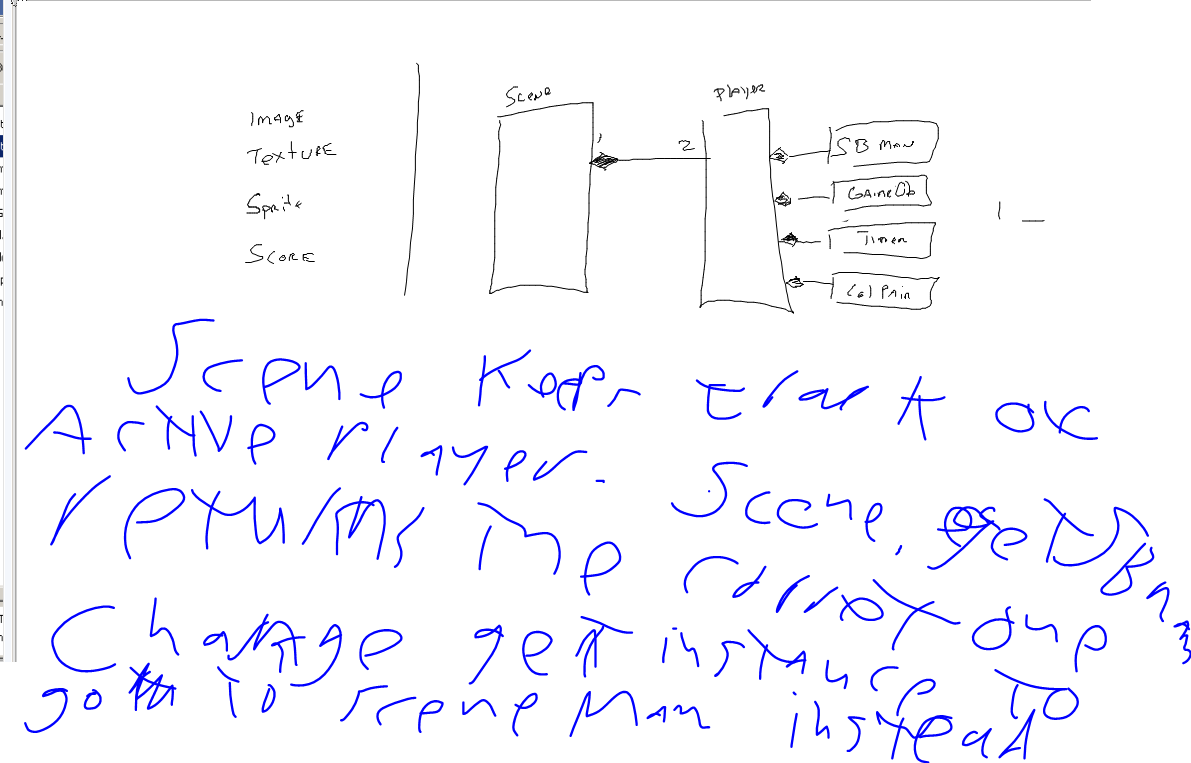 Scene
Player
Image
Texture
Sprite
Score
1
2
SB Man
GameOb
Timer
Col Pair
1 _
Scene keeps track of
Active Player.
Scene.getSBn
returns the correct one
Change get instance to
go to Scene Man instead